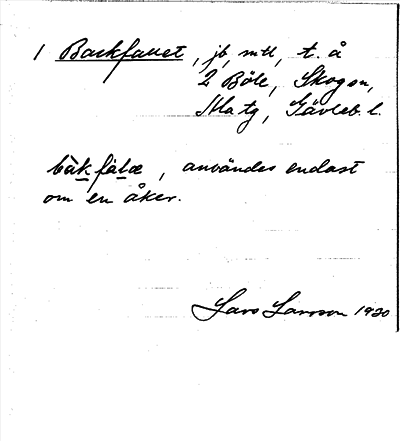 1 Backfallet, jb, mtl, t. å
2 Böle, Skogsn,
Ala tg, Gävleb. l.
bàkfálæ, användes endast
om en åker.
Lars Larsson 1930